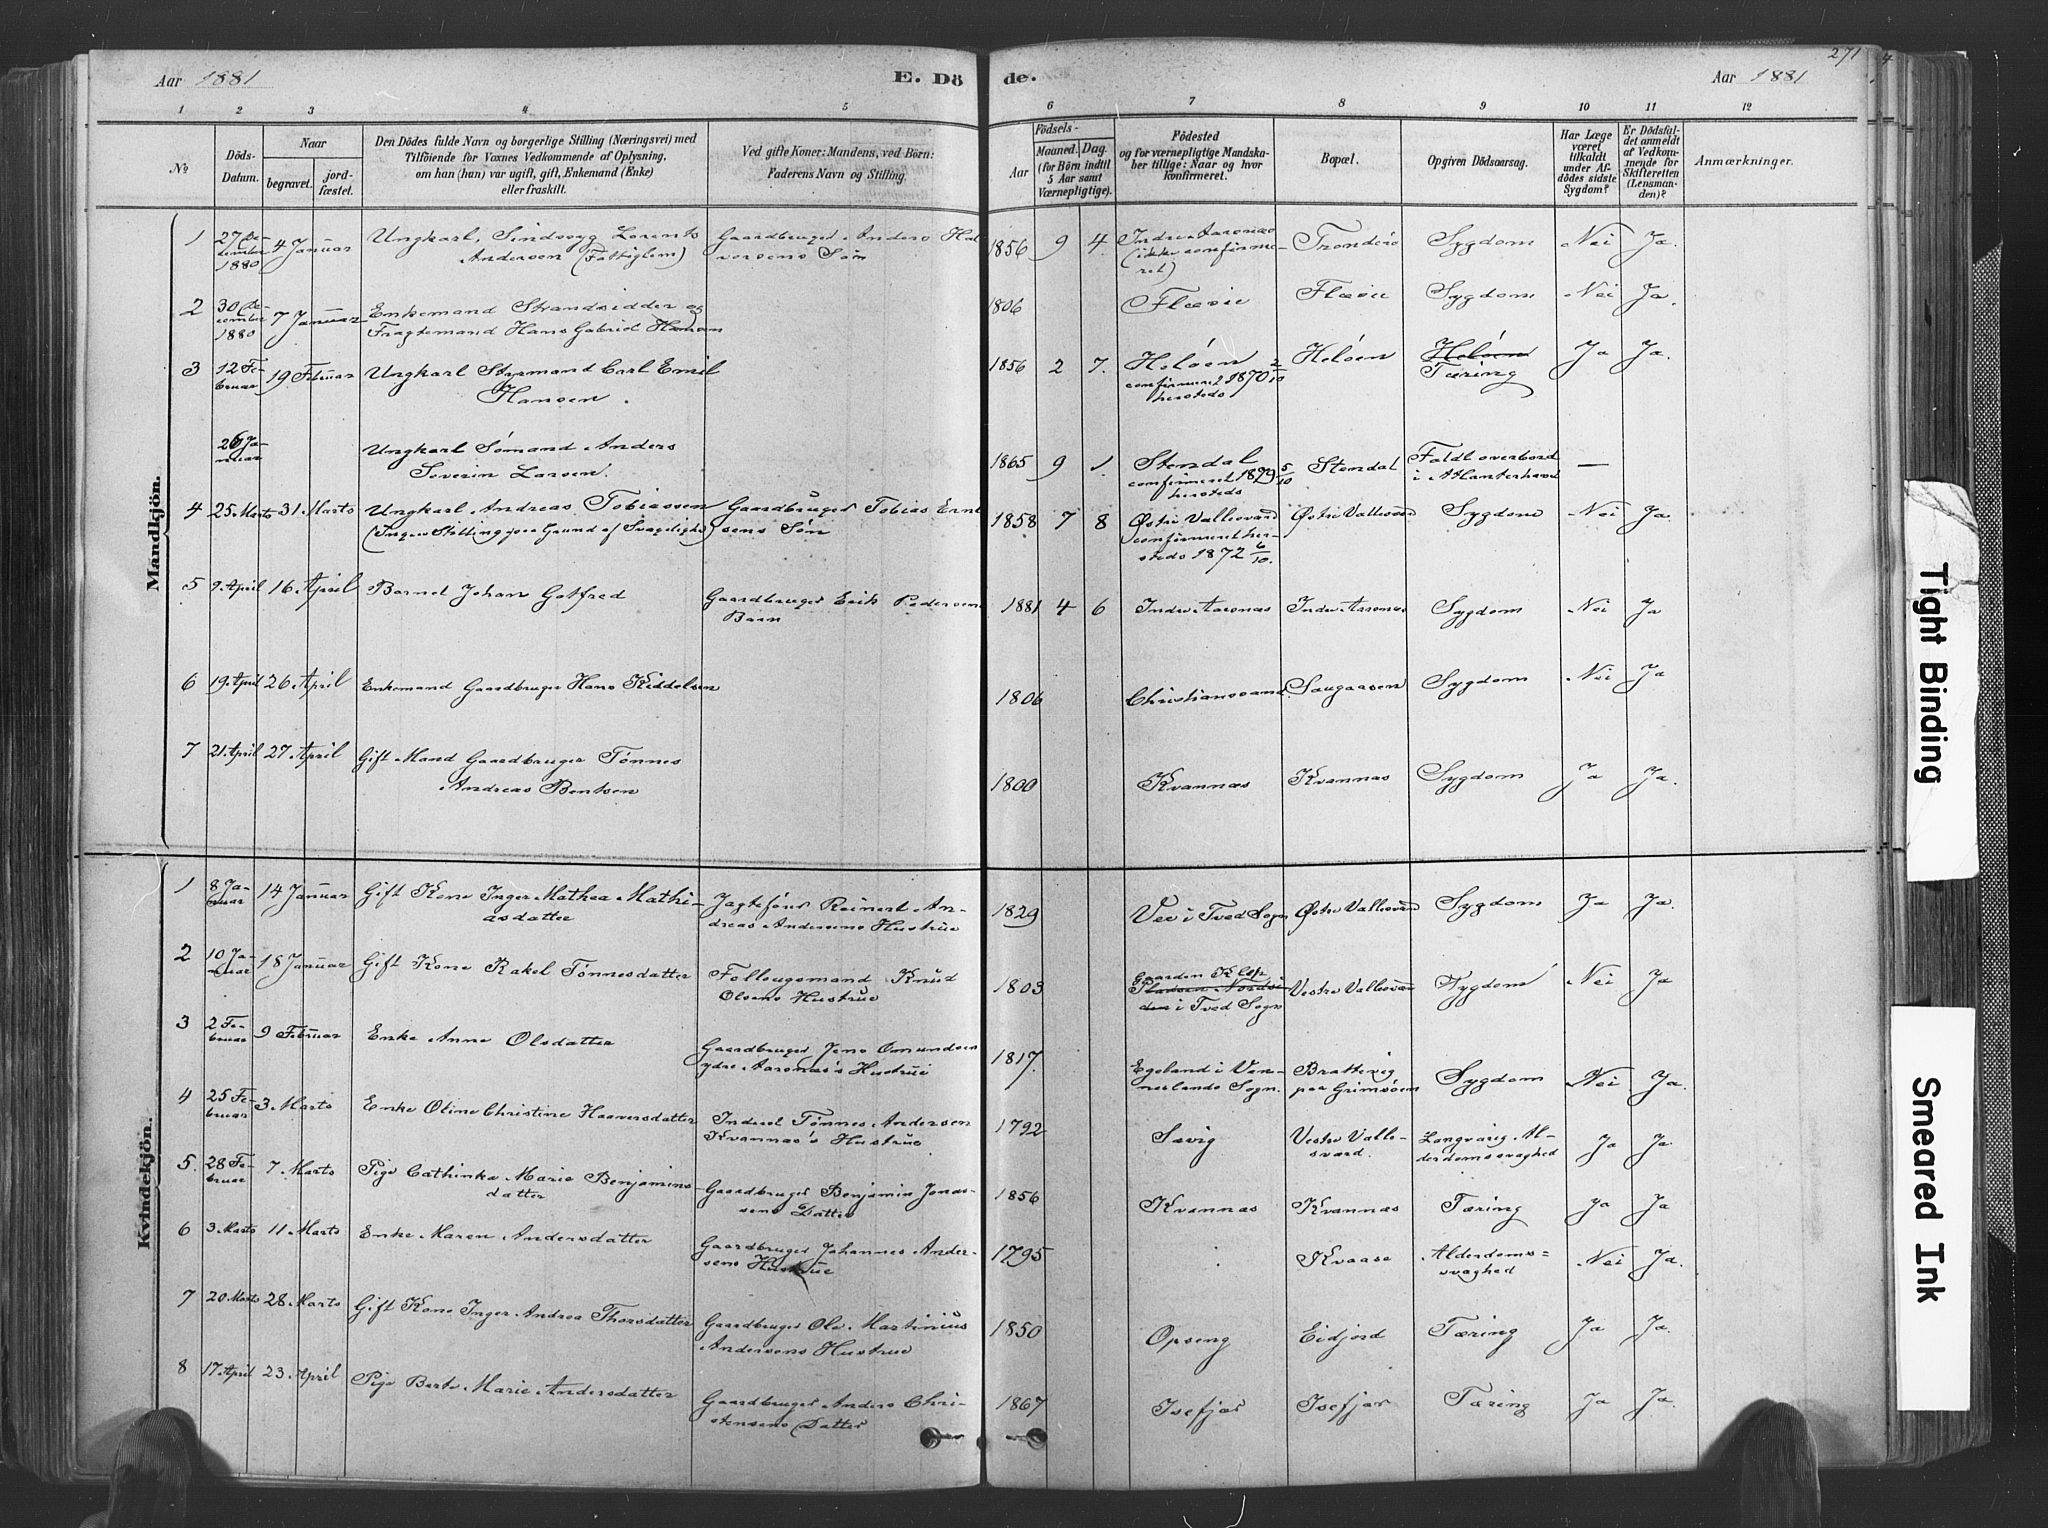 Aar 1881
E. Dö
de.
Aar 1881
271
1 2 3 4 5
6 7 8 9 10 11 12
No
Döds-
Datum.
Naar
begravet.
jord-
fæstet.
Den Dödes fulde Navn og borgerlige Stilling (Næringsvei) med
Tilföiende for Voxnes Vedkommende af Oplysning,
om han (hun) var ugift, gift, Enkemand (Enke)
eller fraskilt.
Ved gifte Koner: Mandens, ved Börn:
Faderens Navn og Stilling.
Födsels-
Aar
Maaned.
Dag.
(for Börn indtil
5 Aar samt
Værnepligtige).
Födested
og for værnepligtige Mandska-
ber tillige: Naar og hvor
konfirmeret.
Bopæl.
Opgiven Dödsaarsag.
Har Læge
været
tilkaldt
under Af-
dödes sidste
Sygdom?
Er Dödsfal-
det anmeldt
af Vedkom-
mende for
Skifteretten
(Lensman-
den)?
Anmærkninger.
Mandkjön.
1 27 De-
cember
1880 4 Januar Ungkarl, Sindssyg Lorents
Andersen (Fattiglem) Gaardbruger Anders Hal-
vorsens Søn 1856 9 4. Indre Aaronæs
(ikke confirme-
ret) Tronderö Sygdom Nei Ja.
2 30 De-
cember
1880 7 Januar Enkemand Strandsidder og
Fragtemand Hans Gabriel Hansen 1806 Flæsie Flæsie Sygdom Nei Ja.
3 12 Fe-
bruar 19 Februar Ungkarl Styrmand Carl Emil
Hansen. 1856 2 7. Heløen
confirmeret 1870 2/10
hersteds Heløen Tæring Ja Ja.
26 Ja-
nuar Ungkarl Sömand Anders
Severin Larsen. 1865 9 1. Stendal
confirmeret 1879 5/10
hersteds Stendal Faldt overbord
i Atlanterhavet —
4 25 Marts 31 Marts Ungkarl Andreas Tobiassen
(Ingen Stilling paa Grund af Svagelighed) Gaardbruger Tobias Ernt
sens Søn 1858 7 8 Østre Vallesværd
confirmeret her-
steds 1872 6/10. Østre Vallesværd Sygdom Nei Ja.
5 9 April 16 April Barnet Johan Gotfred Gaardbruger Erik Pedersens
Barn 1881 4 6 Indre Aaronæs Indre Aaronæs Sygdom Nei Ja
6 19 April 26 April Enkemand Gaardbruger Hans Kiddelsen 1806 Christianssand Saugaasen Sygdom Nei Ja
7 21 April 27 April Gift Mand Gaardbruger Tønnes
Andreas Bentsen 1800 Kvannæs Kvannæs Sygdom Ja Ja.
Kvindekjön.
1 8 Ja-
nuar 14 Januar Gift Kone Inger Mathea Mathi-
asdatter Jagtefører Reinert An-
dreas Andersens Hustrue 1829 Vee i Tved Sogn Østre Vallesværd Sygdom Ja Ja.
2 10 Ja-
nuar 18 Januar Gift Kone Rakel Tønnesdatter Follougsmand Knud
Olsens Hustrue 1803 Gaarden Klep
Pladsen Nordsi-
den i Tved Sogn Vestre Vallesværd Sygdom Nei Ja
3 2 Fe-
bruar 9 Februar Enke Anne Olsdatter Gaardbruger Jens Omundsen
ydre Aaronæs's Hustrue 1817. Egeland i Ven-
neslands Sogn. Brattevig
paa Grimsøen Sygdom Nei Ja.
4 25 Fe-
bruar 3 Marts Enke Oline Christine Haaversdatter Inderst Tønnes Andersen
Kvannæs's Hustrue 1792 Sævig Vestre Valle-
sværd. Langvarig Al-
derdomssvaghed Ja Ja
5. 28 Fe-
bruar 7 Marts Pige Cathinka Marie Benjamins-
datter Gaardbruger Benjamin Jonas-
sens Datter 1856 Kvannæs Kvannæs Tæring Ja Ja
6 3 Marts 11 Marts Enke Maren Andersdatter Gaardbruger Johannes Ander-
sens Hustrue 1795 Kvaase Alderdoms=
svaghed Nei Ja.
7 20 Marts 28 Marts Gift Kone Inger Andrea Thorsdatter Gaardbruger Ole Martinius
Andersens Hustrue 1850 Opseng Eidjord Tæring Ja Ja.
8 17 April 23 April Pige Berte Marie Andersdatter Gaardbruger Anders Chri-
stensens Datter 1867 Isefjær Isefjær Tæring Ja Ja.
Tight Binding
Smeared Ink